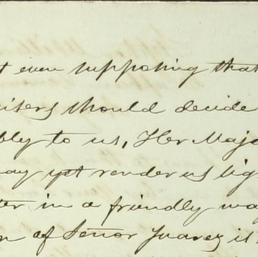 t even supposing that
isers should decide
bly to us, Her Maje
may yet render us lig
ter in a friendly wa
on of Señor Juarez it i